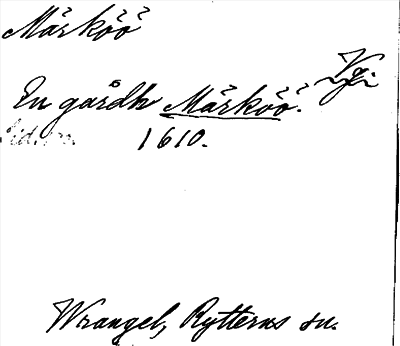 Märköö
En gårdh Märköö. Vgi
1610.
Wrangel, Rytterns sn.